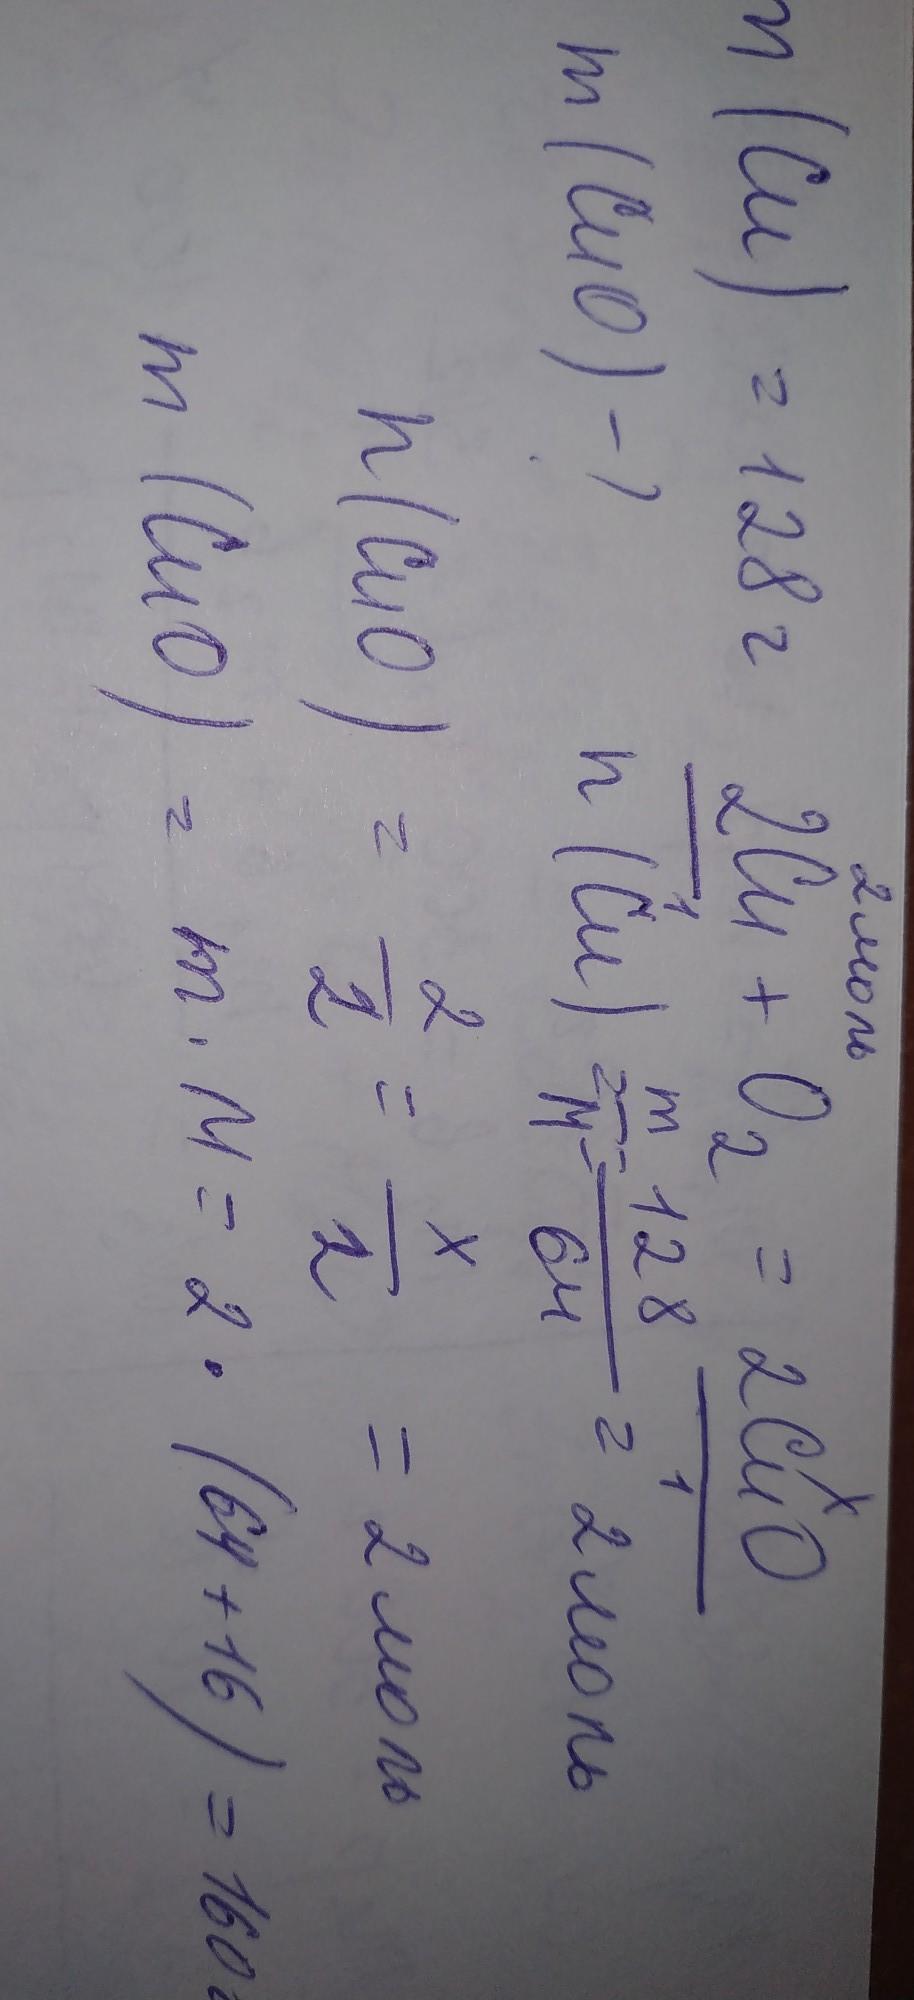 m (Cu) = 128 г
m (CuO) - ?
2 моль x
2Cu + O2 = 2CuO
1 1
n (Cu) = m/M = 128/64 = 2 моль
n (CuO) = 2/2 = x/2 = 2 моль
m (CuO) = m · M = 2 · (64 + 16) = 160г